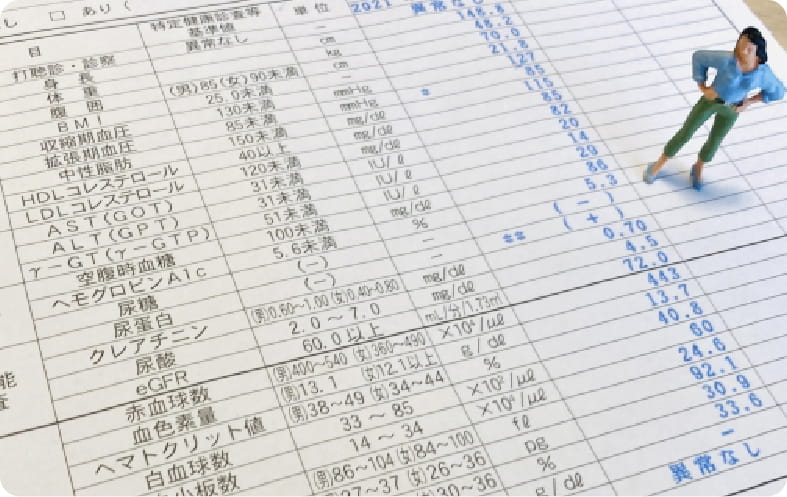 し □ あり (
目 特定健康診査等 基準値 単位 2021
打聴診・診察 異常なし － 異常なし
身長 cm 148.8
体重 kg 48.2
腹囲 (男)85(女)90未満 cm 70.0
BMI 25.0未満 － 21.8
収縮期血圧 130未満 mmHg 127
拡張期血圧 85未満 mmHg * 85
中性脂肪 150未満 mg/dl 115
HDLコレステロール 40以上 mg/dl 85
LDLコレステロール 120未満 mg/dl 82
AST(GOT) 31未満 IU/l 20
ALT(GPT) 31未満 IU/l 14
γ-GT(γ-GTP) 51未満 IU/l 29
空腹時血糖 100未満 mg/dl 86
ヘモグロビンA1c 5.6未満 % 5.3
尿糖 (－) － (－)
尿蛋白 (－) － ** (＋)
クレアチニン (男)0.60～1.00(女)0.40～0.80 mg/dl 0.70
尿酸 2.0～7.0 mg/dl 4.5
eGFR 60.0以上 mL/分/1.73㎡ 72.0
赤血球数 (男)400～540 (女)360～490 ×10⁴/μl 443
血色素量 (男)13.1 (女)12.1以上 g/dl 13.7
ヘマトクリット値 (男)38～49(女)34～44 % 40.8
白血球数 33～85 ×10²/μl 60
小板数 14～34 ×10⁴/μl 24.6
(男)86～104(女)84～100 fl 92.1
27～37(女)26～36 pg 30.9
30～36 % 33.6
g/dl －
異常なし